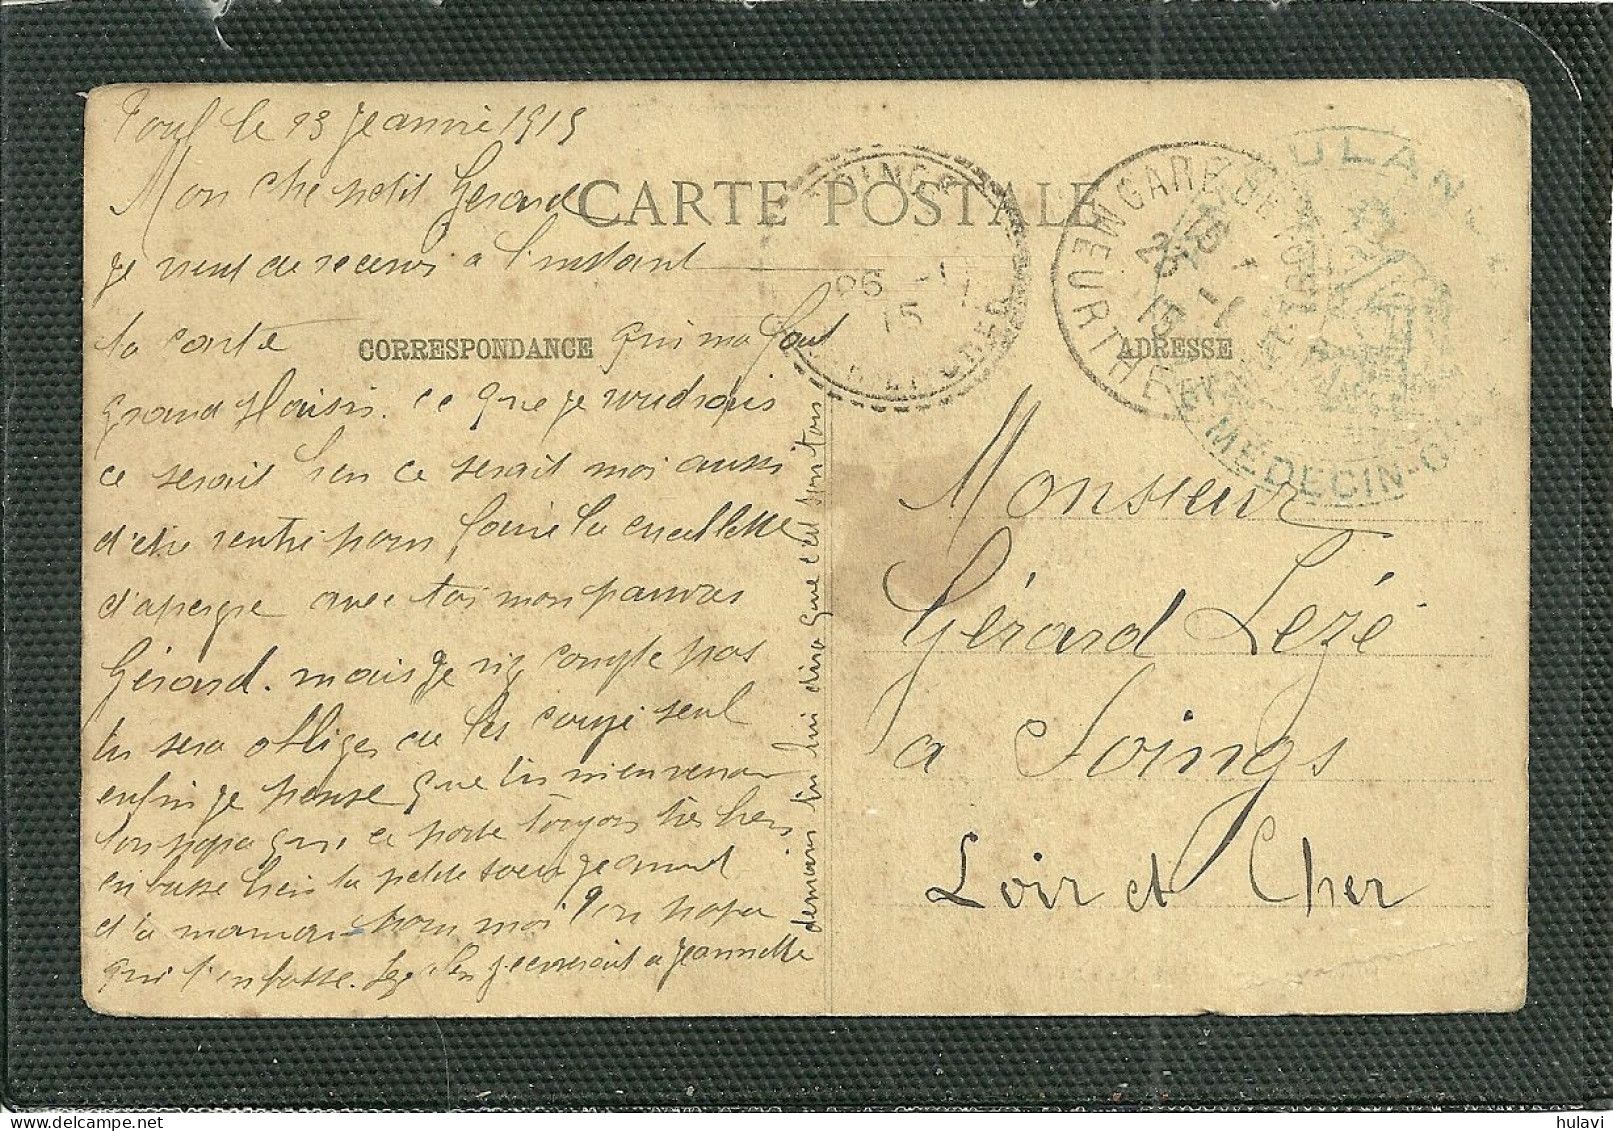 Toul le 23 Jeanvié 1915
Mon cher petit Gérard
CARTE POSTALE
je vient de recevoir a l'instant
ta carte qui ma fait
CORRESPONDANCE
ADRESSE
grand plaisir. ce que je voudrais
ce serait bien ce serait moi aussi
d'etre rentré pour faire la cueillette
d'asperge avec toi mon pauvre
Gérard. mais je ni compte pas
tu sera obliger de les coupé seul
enfin je pense que tu
ton papa qui ce porte toujours très bien
embrasse bien ta petite soeur
et ta maman pour moi ton papa
qui t'embrasse. Lezé j'ecrirait a Jeannette
demain tu lui dira que c'est son tour
Monsieur
Gérard Lezé
a Soings
Loir et Cher
SOINGS
26 -1
15
LOIR-ET-CHER
GARE DE TOUL
MEURTHE
25 -1
15
AMBULAN
MÉDECIN-C
hulavi